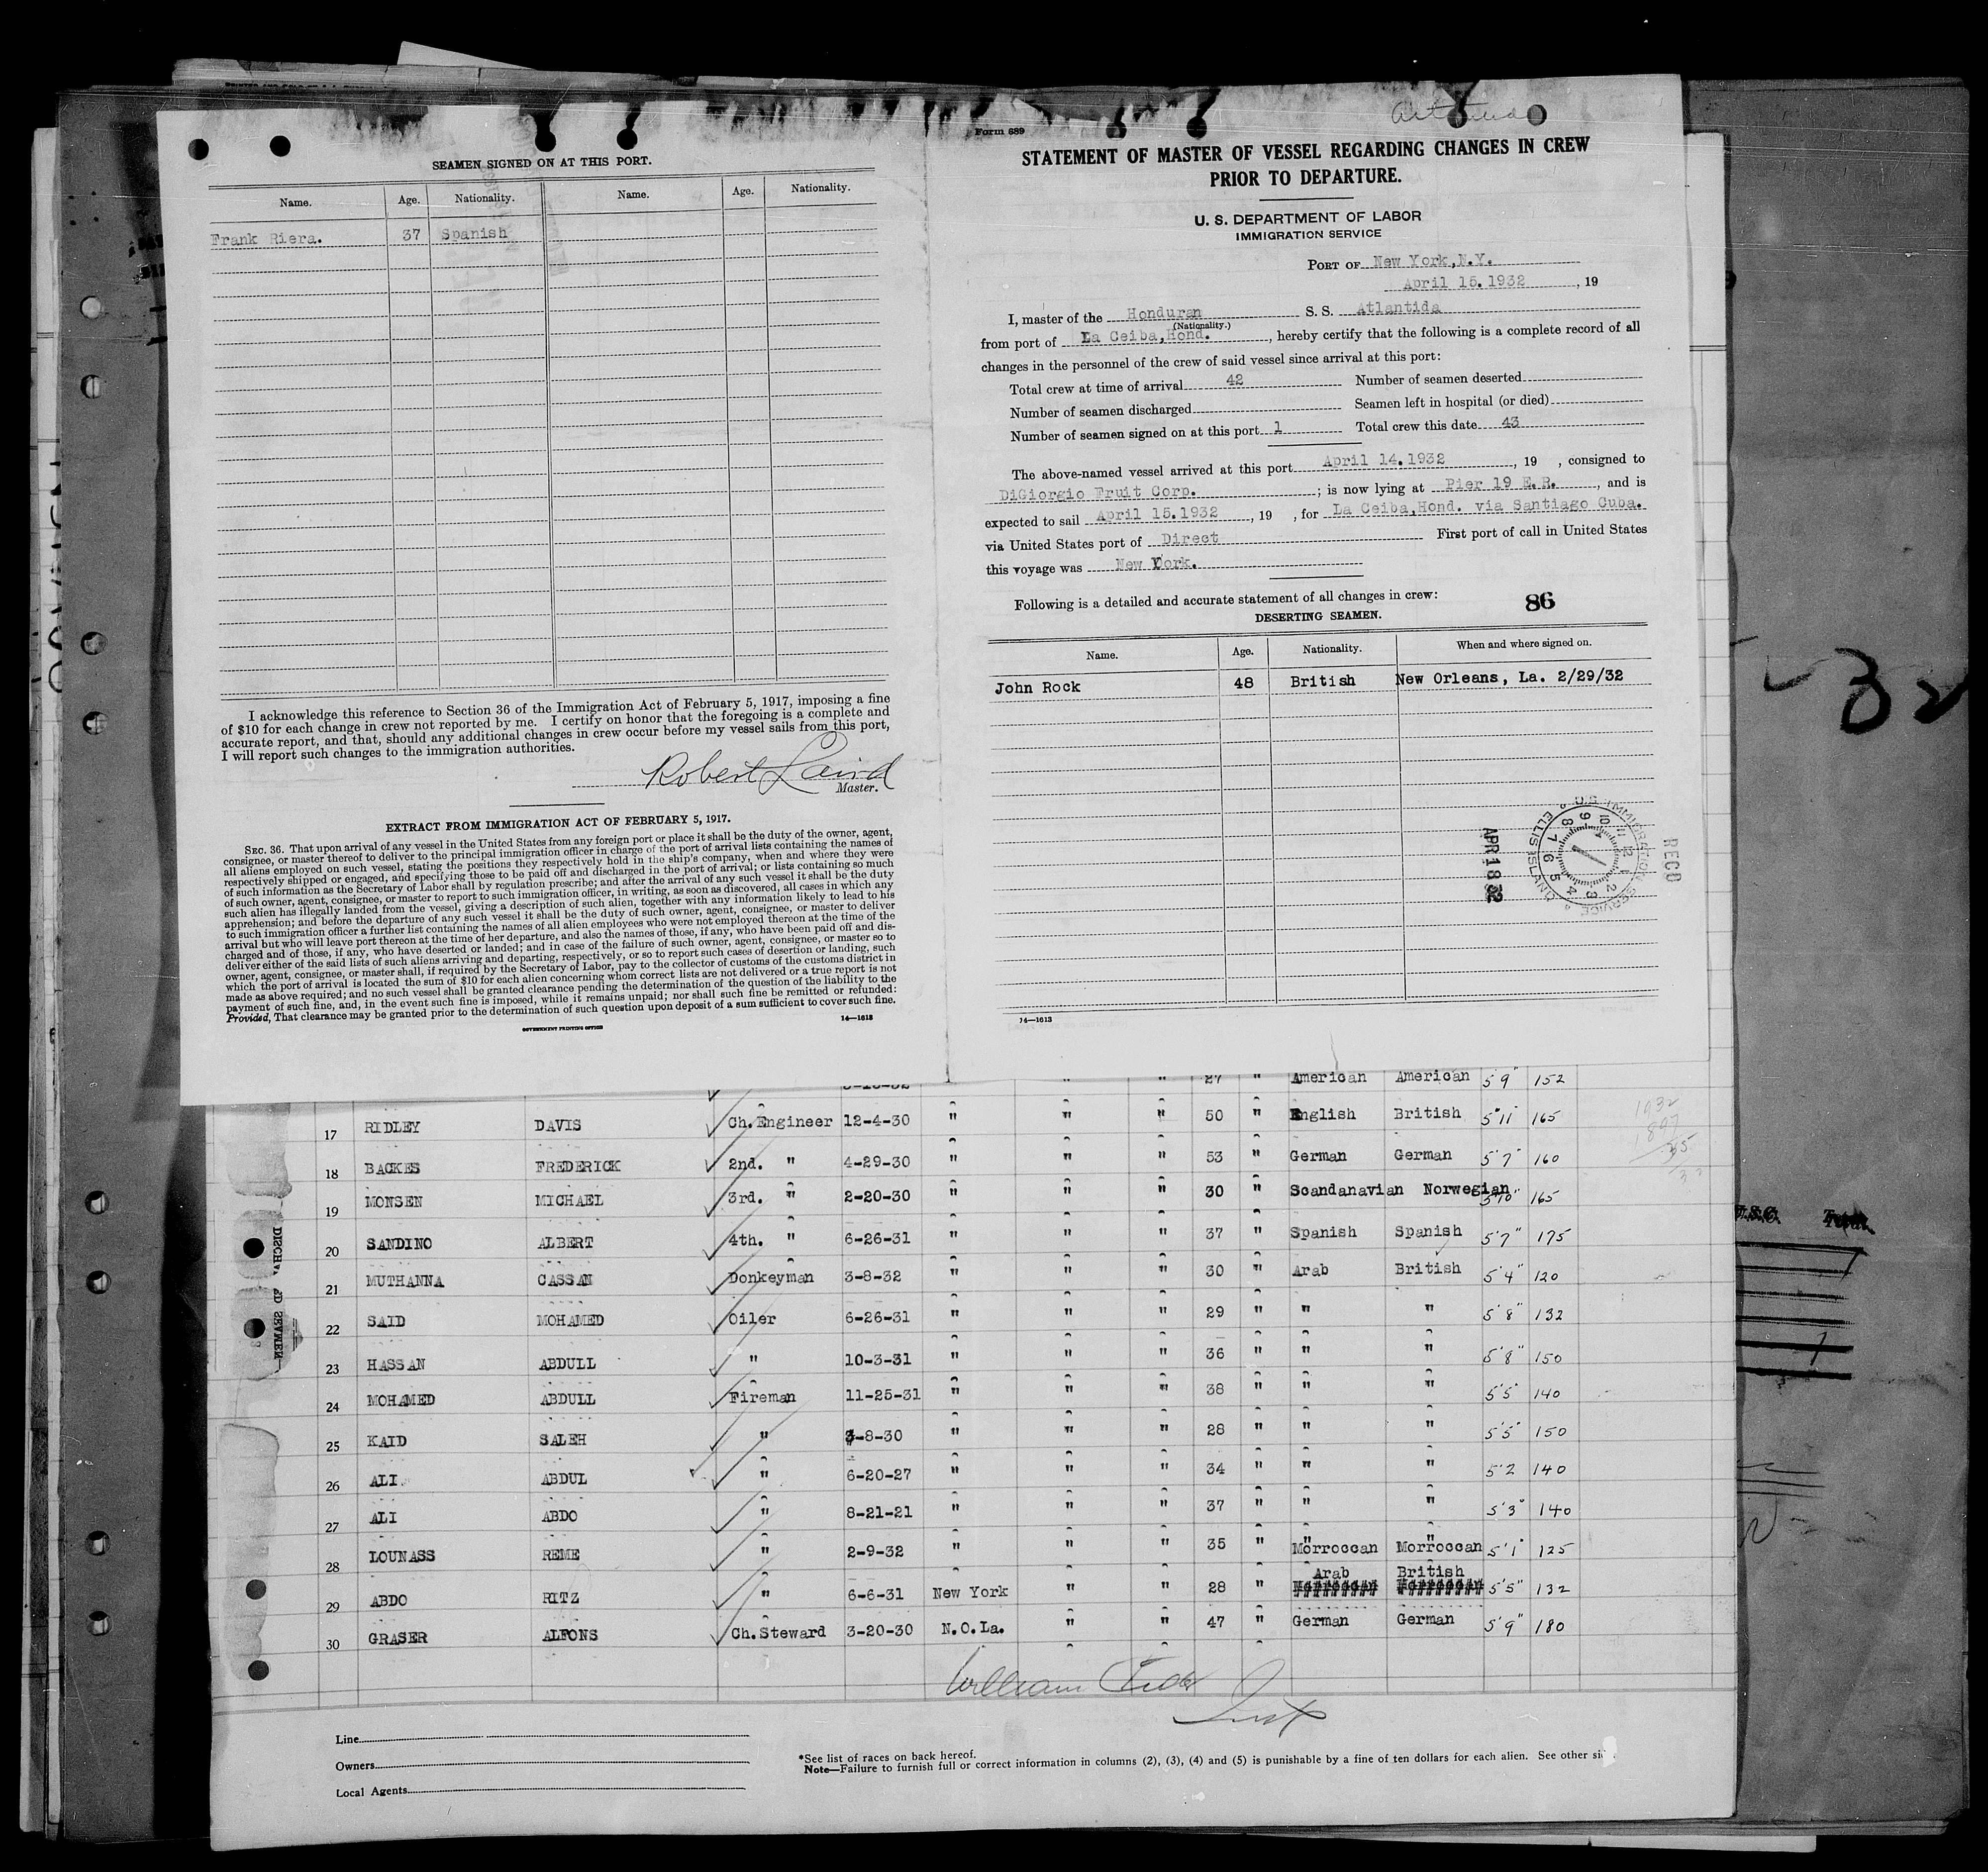 SEAMEN SIGNED ON AT THIS PORT.
Name. Age. Nationality. Name. Age. Nationality.
Frank Riera. 37 Spanish
I acknowledge this reference to Section 36 of the Immigration Act of February 5, 1917, imposing a fine
of $10 for each change in crew not reported by me. I certify on honor that the foregoing is a complete and
accurate report, and that, should any additional changes in crew occur before my vessel sails from this port,
I will report such changes to the immigration authorities.
Robert Laird
Master.
EXTRACT FROM IMMIGRATION ACT OF FEBRUARY 5, 1917.
SEC. 36. That upon arrival of any vessel in the United States from any foreign port or place it shall be the duty of the owner, agent,
consignee, or master thereof to deliver to the principal immigration officer in charge of the port of arrival lists containing the names of
all aliens employed on such vessel, stating the positions they respectively hold in the ship's company, when and where they were
respectively shipped or engaged, and specifying those to be paid off and discharged in the port of arrival; or lists containing so much
of such information as the Secretary of Labor shall by regulation prescribe; and after the arrival of any such vessel it shall be the duty
of such owner, agent, consignee, or master to report to such immigration officer, in writing, as soon as discovered, all cases in which any
such alien has illegally landed from the vessel, giving a description of such alien, together with any information likely to lead to his
apprehension; and before the departure of any such vessel it shall be the duty of such owner, agent, consignee, or master to deliver
to such immigration officer a further list containing the names of all alien employees who were not employed thereon at the time of the
arrival but who will leave port thereon at the time of her departure, and also the names of those, if any, who have been paid off and dis-
charged and of those, if any, who have deserted or landed; and in case of the failure of such owner, agent, consignee, or master so to
deliver either of the said lists of such aliens arriving and departing, respectively, or so to report such cases of desertion or landing, such
owner, agent, consignee, or master shall, if required by the Secretary of Labor, pay to the collector of customs of the customs district in
which the port of arrival is located the sum of $10 for each alien concerning whom correct lists are not delivered or a true report is not
made as above required; and no such vessel shall be granted clearance pending the determination of the question of the liability to the
payment of such fine, and, in the event such fine is imposed, while it remains unpaid; nor shall such fine be remitted or refunded:
Provided, That clearance may be granted prior to the determination of such question upon deposit of a sum sufficient to cover such fine.
GOVERNMENT PRINTING OFFICE 14—1613
Form 689
STATEMENT OF MASTER OF VESSEL REGARDING CHANGES IN CREW
PRIOR TO DEPARTURE.
U. S. DEPARTMENT OF LABOR
IMMIGRATION SERVICE
PORT OF New York, N.Y.
April 15.1932, 19
I, master of the Honduran S. S. Atlantida
(Nationality.)
from port of La Ceiba, Hond., hereby certify that the following is a complete record of all
changes in the personnel of the crew of said vessel since arrival at this port:
Total crew at time of arrival 42 Number of seamen deserted
Number of seamen discharged Seamen left in hospital (or died)
Number of seamen signed on at this port 1 Total crew this date 43
The above-named vessel arrived at this port April 14.1932, 19 , consigned to
DiGiorgio Fruit Corp.; is now lying at Pier 19 E.R., and is
expected to sail April 15.1932, 19 , for La Ceiba, Hond. via Santiago Cuba.
via United States port of Direct First port of call in United States
this voyage was New York.
Following is a detailed and accurate statement of all changes in crew:
86
DESERTING SEAMEN.
Name. Age. Nationality. When and where signed on.
John Rock 48 British New Orleans, La. 2/29/32
REC'D
U.S. IMMIGRATION SERVICE
ELLIS ISLAND
APR 18 32
14—1613
32
27 " American American 5'9" 152
17 RIDLEY DAVIS Ch.Engineer 12-4-30 " " " 50 " English British 5'11" 165
18 BACKES FREDERICK 2nd. " 4-29-30 " " " 53 " German German 5'7" 160
19 MONSEN MICHAEL 3rd. " 2-20-30 " " " 30 " Scandanavian Norwegian 5'10" 165
20 SANDINO ALBERT 4th. " 6-26-31 " " " 37 " Spanish Spanish 5'7" 175
21 MUTHANNA CASSAN Donkeyman 3-8-32 " " " 30 " Arab British 5'4" 120
22 SAID MOHAMED Oiler 6-26-31 " " " 29 " " " 5'8" 132
23 HASSAN ABDULL " 10-3-31 " " " 36 " " " 5'8" 150
24 MOHAMED ABDULL Fireman 11-25-31 " " " 38 " " " 5'5" 140
25 KAID SALEH " 3-8-30 " " " 28 " " " 5'5" 150
26 ALI ABDUL " 6-20-27 " " " 34 " " " 5'2 140
27 ALI ABDO " 8-21-21 " " " 37 " " " 5'3" 140
28 LOUNASS REME " 2-9-32 " " " 35 " Morroccan Morroccan 5'1" 125
29 ABDO RITZ " 6-6-31 New York " " 28 " Arab British 5'5" 132
30 GRASER ALFONS Ch.Steward 3-20-30 N.O.La. " " 47 " German German 5'9" 180
William
Line
Owners
Local Agents
*See list of races on back hereof.
Note—Failure to furnish full or correct information in columns (2), (3), (4) and (5) is punishable by a fine of ten dollars for each alien. See other